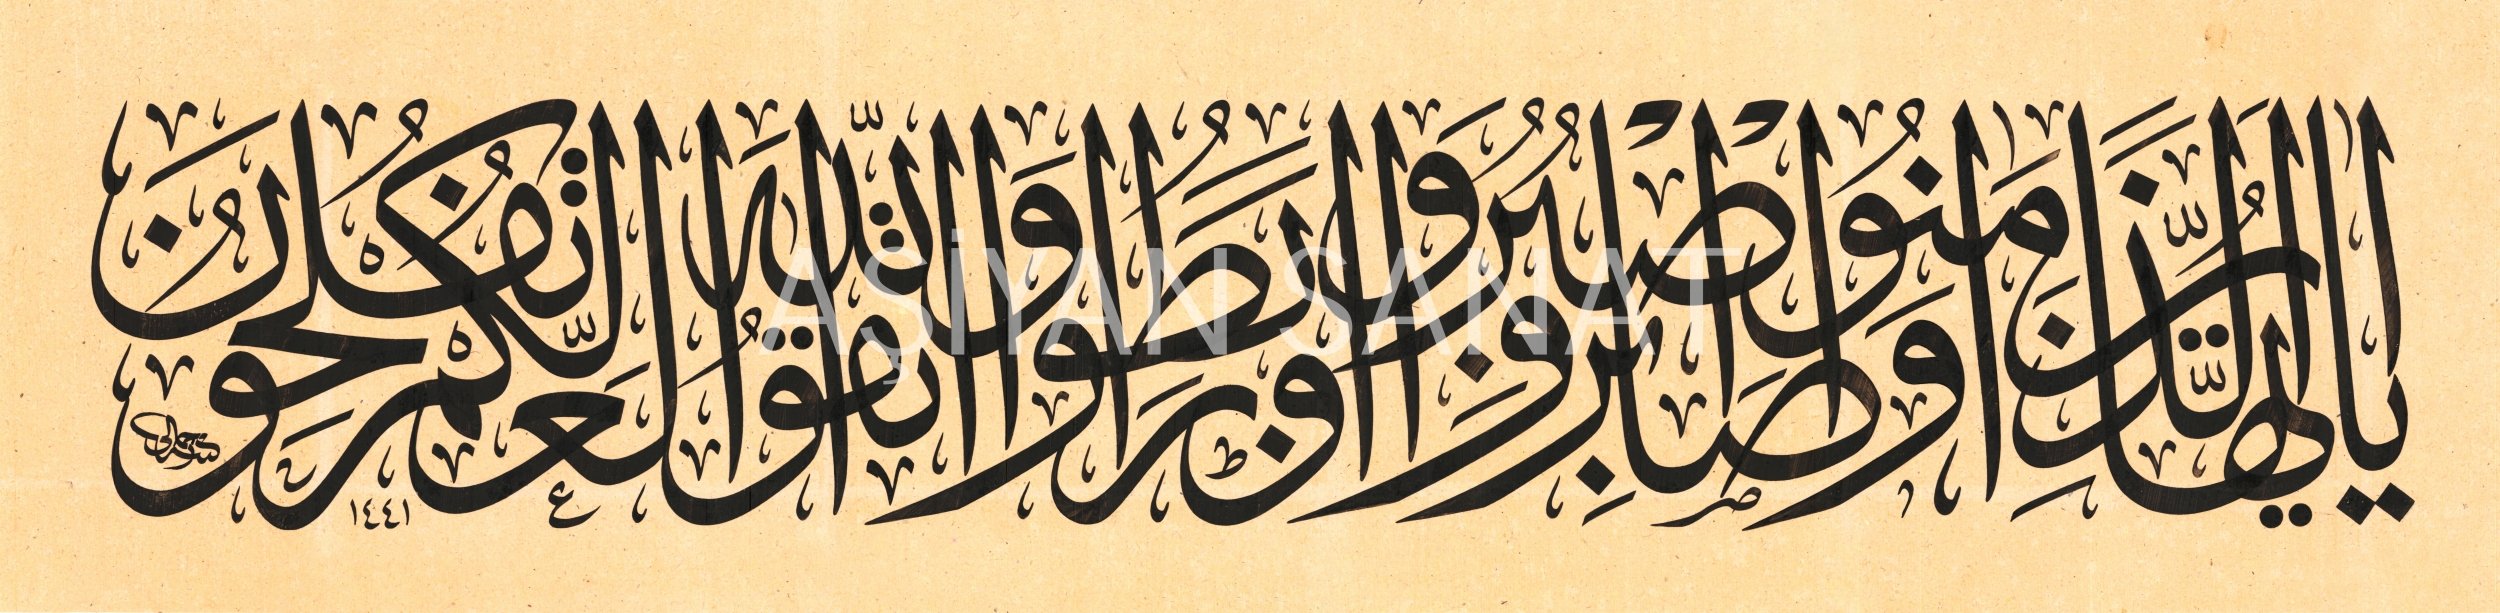 يا أيها الذين آمنوا اصبروا وصابروا ورابطوا واتقوا الله لعلكم تفلحون
١٤٤١
AŞİYAN SANAT